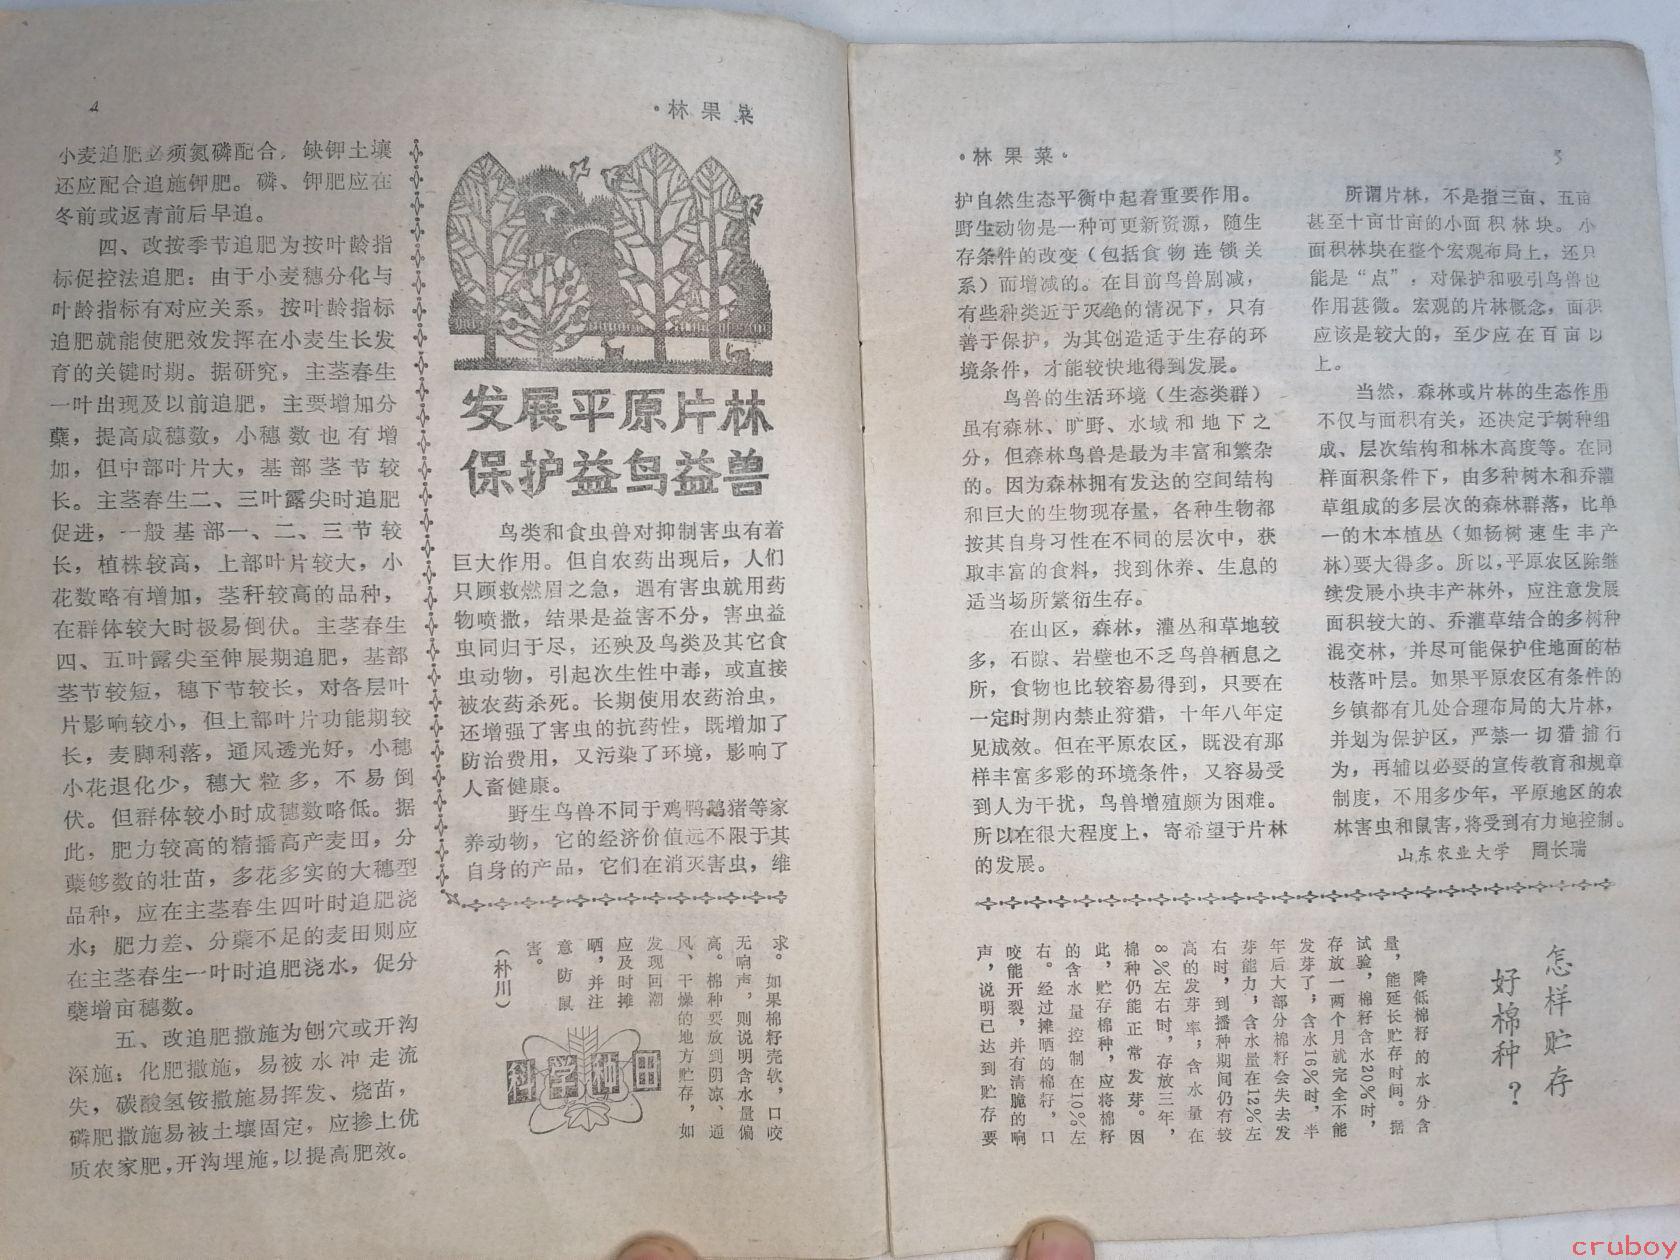 4
·林果菜
小麦追肥必须氮磷配合，缺钾土壤
还应配合追施钾肥。磷、钾肥应在
冬前或返青前后早追。
四、改按季节追肥为按叶龄指
标促控法追肥：由于小麦穗分化与
叶龄指标有对应关系，按叶龄指标
追肥就能使肥效发挥在小麦生长发
育的关键时期。据研究，主茎春生
一叶出现及以前追肥，主要增加分
蘖，提高成穗数，小穗数也有增
加，但中部叶片大，基部茎节较
长。主茎春生二、三叶露尖时追肥
促进，一般基部一、二、三节较
长，植株较高，上部叶片较大，小
花数略有增加，茎秆较高的品种，
在群体较大时极易倒伏。主茎春生
四、五叶露尖至伸展期追肥，基部
茎节较短，穗下节较长，对各层叶
片影响较小，但上部叶片功能期较
长，麦脚利落，通风透光好，小穗
小花退化少，穗大粒多，不易倒
伏。但群体较小时成穗数略低。据
此，肥力较高的精播高产麦田，分
蘖够数的壮苗，多花多实的大穗型
品种，应在主茎春生四叶时追肥浇
水；肥力差、分蘖不足的麦田则应
在主茎春生一叶时追肥浇水，促分
蘖增亩穗数。
五、改追肥撒施为刨穴或开沟
深施：化肥撒施，易被水冲走流
失，碳酸氢铵撒施易挥发、烧苗，
磷肥撒施易被土壤固定，应掺上优
质农家肥，开沟埋施，以提高肥效。
发展平原片林
保护益鸟益兽
鸟类和食虫兽对抑制害虫有着
巨大作用。但自农药出现后，人们
只顾救燃眉之急，遇有害虫就用药
物喷撒，结果是益害不分，害虫益
虫同归于尽，还殃及鸟类及其它食
虫动物，引起次生性中毒，或直接
被农药杀死。长期使用农药治虫，
还增强了害虫的抗药性，既增加了
防治费用，又污染了环境，影响了
人畜健康。
野生鸟兽不同于鸡鸭鹅猪等家
养动物，它的经济价值远不限于其
自身的产品，它们在消灭害虫，维
·林果菜·
5
护自然生态平衡中起着重要作用。
野生动物是一种可更新资源，随生
存条件的改变（包括食物连锁关
系）而增减的。在目前鸟兽剧减，
有些种类近于灭绝的情况下，只有
善于保护，为其创造适于生存的环
境条件，才能较快地得到发展。
鸟兽的生活环境（生态类群）
虽有森林、旷野、水域和地下之
分，但森林鸟兽是最为丰富和繁杂
的。因为森林拥有发达的空间结构
和巨大的生物现存量，各种生物都
按其自身习性在不同的层次中，获
取丰富的食料，找到休养、生息的
适当场所繁衍生存。
在山区，森林，灌丛和草地较
多，石隙、岩壁也不乏鸟兽栖息之
所，食物也比较容易得到，只要在
一定时期内禁止狩猎，十年八年定
见成效。但在平原农区，既没有那
样丰富多彩的环境条件，又容易受
到人为干扰，鸟兽增殖颇为困难。
所以在很大程度上，寄希望于片林
的发展。
所谓片林，不是指三亩、五亩
甚至十亩廿亩的小面积林块。小
面积林块在整个宏观布局上，还只
能是“点”，对保护和吸引鸟兽也
作用甚微。宏观的片林概念，面积
应该是较大的，至少应在百亩以
上。
当然，森林或片林的生态作用
不仅与面积有关，还决定于树种组
成、层次结构和林木高度等。在同
样面积条件下，由多种树木和乔灌
草组成的多层次的森林群落，比单
一的木本植丛（如杨树速生丰产
林）要大得多。所以，平原农区除继
续发展小块丰产林外，应注意发展
面积较大的、乔灌草结合的多树种
混交林，并尽可能保护住地面的枯
枝落叶层。如果平原农区有条件的
乡镇都有几处合理布局的大片林，
并划为保护区，严禁一切猎捕行
为，再辅以必要的宣传教育和规章
制度，不用多少年，平原地区的农
林害虫和鼠害，将受到有力地控制。
山东农业大学　周长瑞
怎样贮存
好棉种？
降低棉籽的水分含
量，能延长贮存时间。据
试验，棉籽含水20%时，
存放一两个月就完全不能
发芽了；含水16%时，半
年后大部分棉籽会失去发
芽能力；含水量在12%左
右时，到播种期间仍有较
高的发芽率；含水量在
8%左右时，存放三年，
棉种仍能正常发芽。因
此，贮存棉种，应将棉籽
的含水量控制在10%左
右。经过摊晒的棉籽，口
咬能开裂，并有清脆的响
声，说明已达到贮存要
求。如果棉籽壳软，口咬
无响声，则说明含水量偏
高。棉种要放到阴凉、通
风、干燥的地方贮存，如
发现回潮
应及时摊
晒，并注
意防鼠
害。
（朴川）
科学种田
cruboy